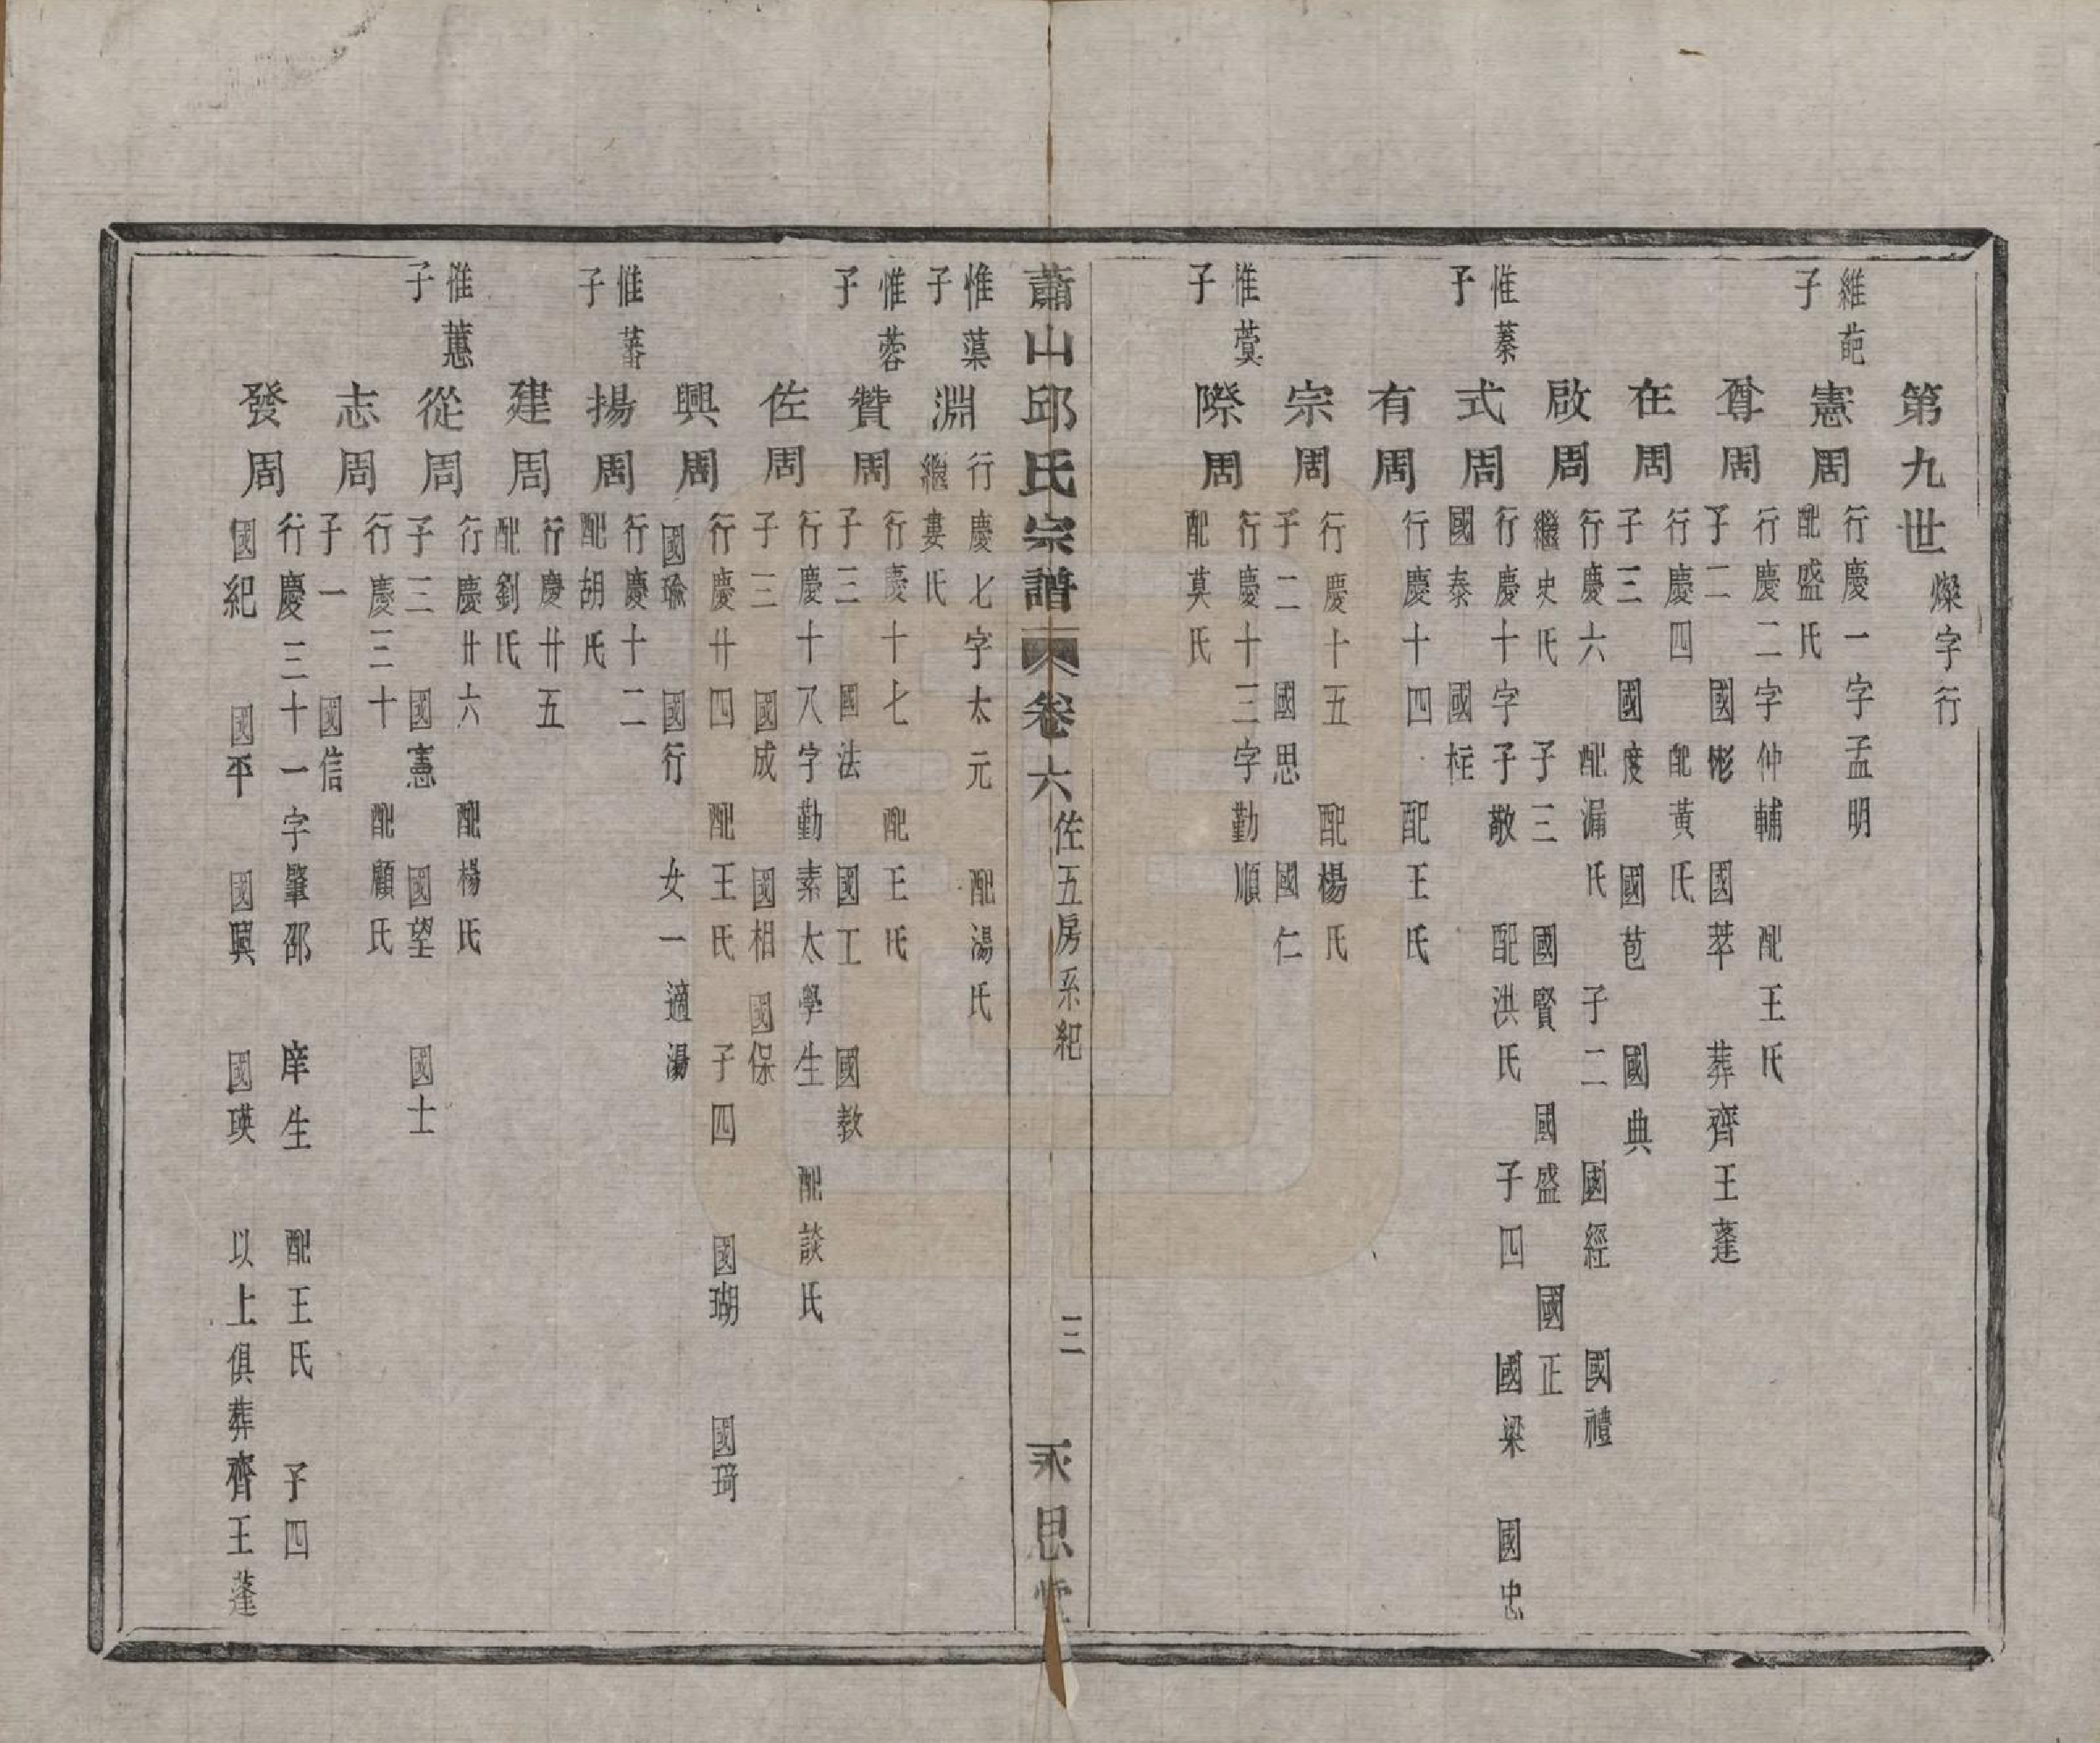 第九世 燦字行
維葩子
憲周 行慶一字孟明
配盛氏
尊周 行慶二字仲輔 配王氏
子二 國彬 國萃 葬齊王蓬
在周 行慶四 配黃氏
子三 國度 國苞 國典
啟周 行慶六 配漏氏 子二 國經 國禮
繼史氏 子三 國賢 國盛 國正
惟蓁子
式周 行慶十字子敬 配洪氏 子四 國梁 國忠
國泰 國柱
有周 行慶十四 配王氏
宗周 行慶十五 配楊氏
子二 國思 國仁
惟蓂子
際周 行慶十三字勤順
配莫氏
蕭山邱氏宗譜 卷六 佐五房系紀 三 永思堂
惟蕖子
淵 行慶七字太元 配湯氏
繼婁氏
惟蓉子
贊周 行慶十七 配王氏
子三 國法 國工 國教
佐周 行慶十八字勤素太學生 配談氏
子三 國成 國相 國保
興周 行慶廿四 配王氏 子四 國瑚 國琦
國瑜 國行 女一適湯
惟蕃子
揚周 行慶十二
配胡氏
建周 行慶廿五
配劉氏
惟蕙子
從周 行慶廿六 配楊氏
子三 國憲 國望 國士
志周 行慶三十 配顧氏
子一 國信
發周 行慶三十一字肇邵 庠生 配王氏 子四
國紀 國平 國興 國瑛 以上俱葬齊王蓬